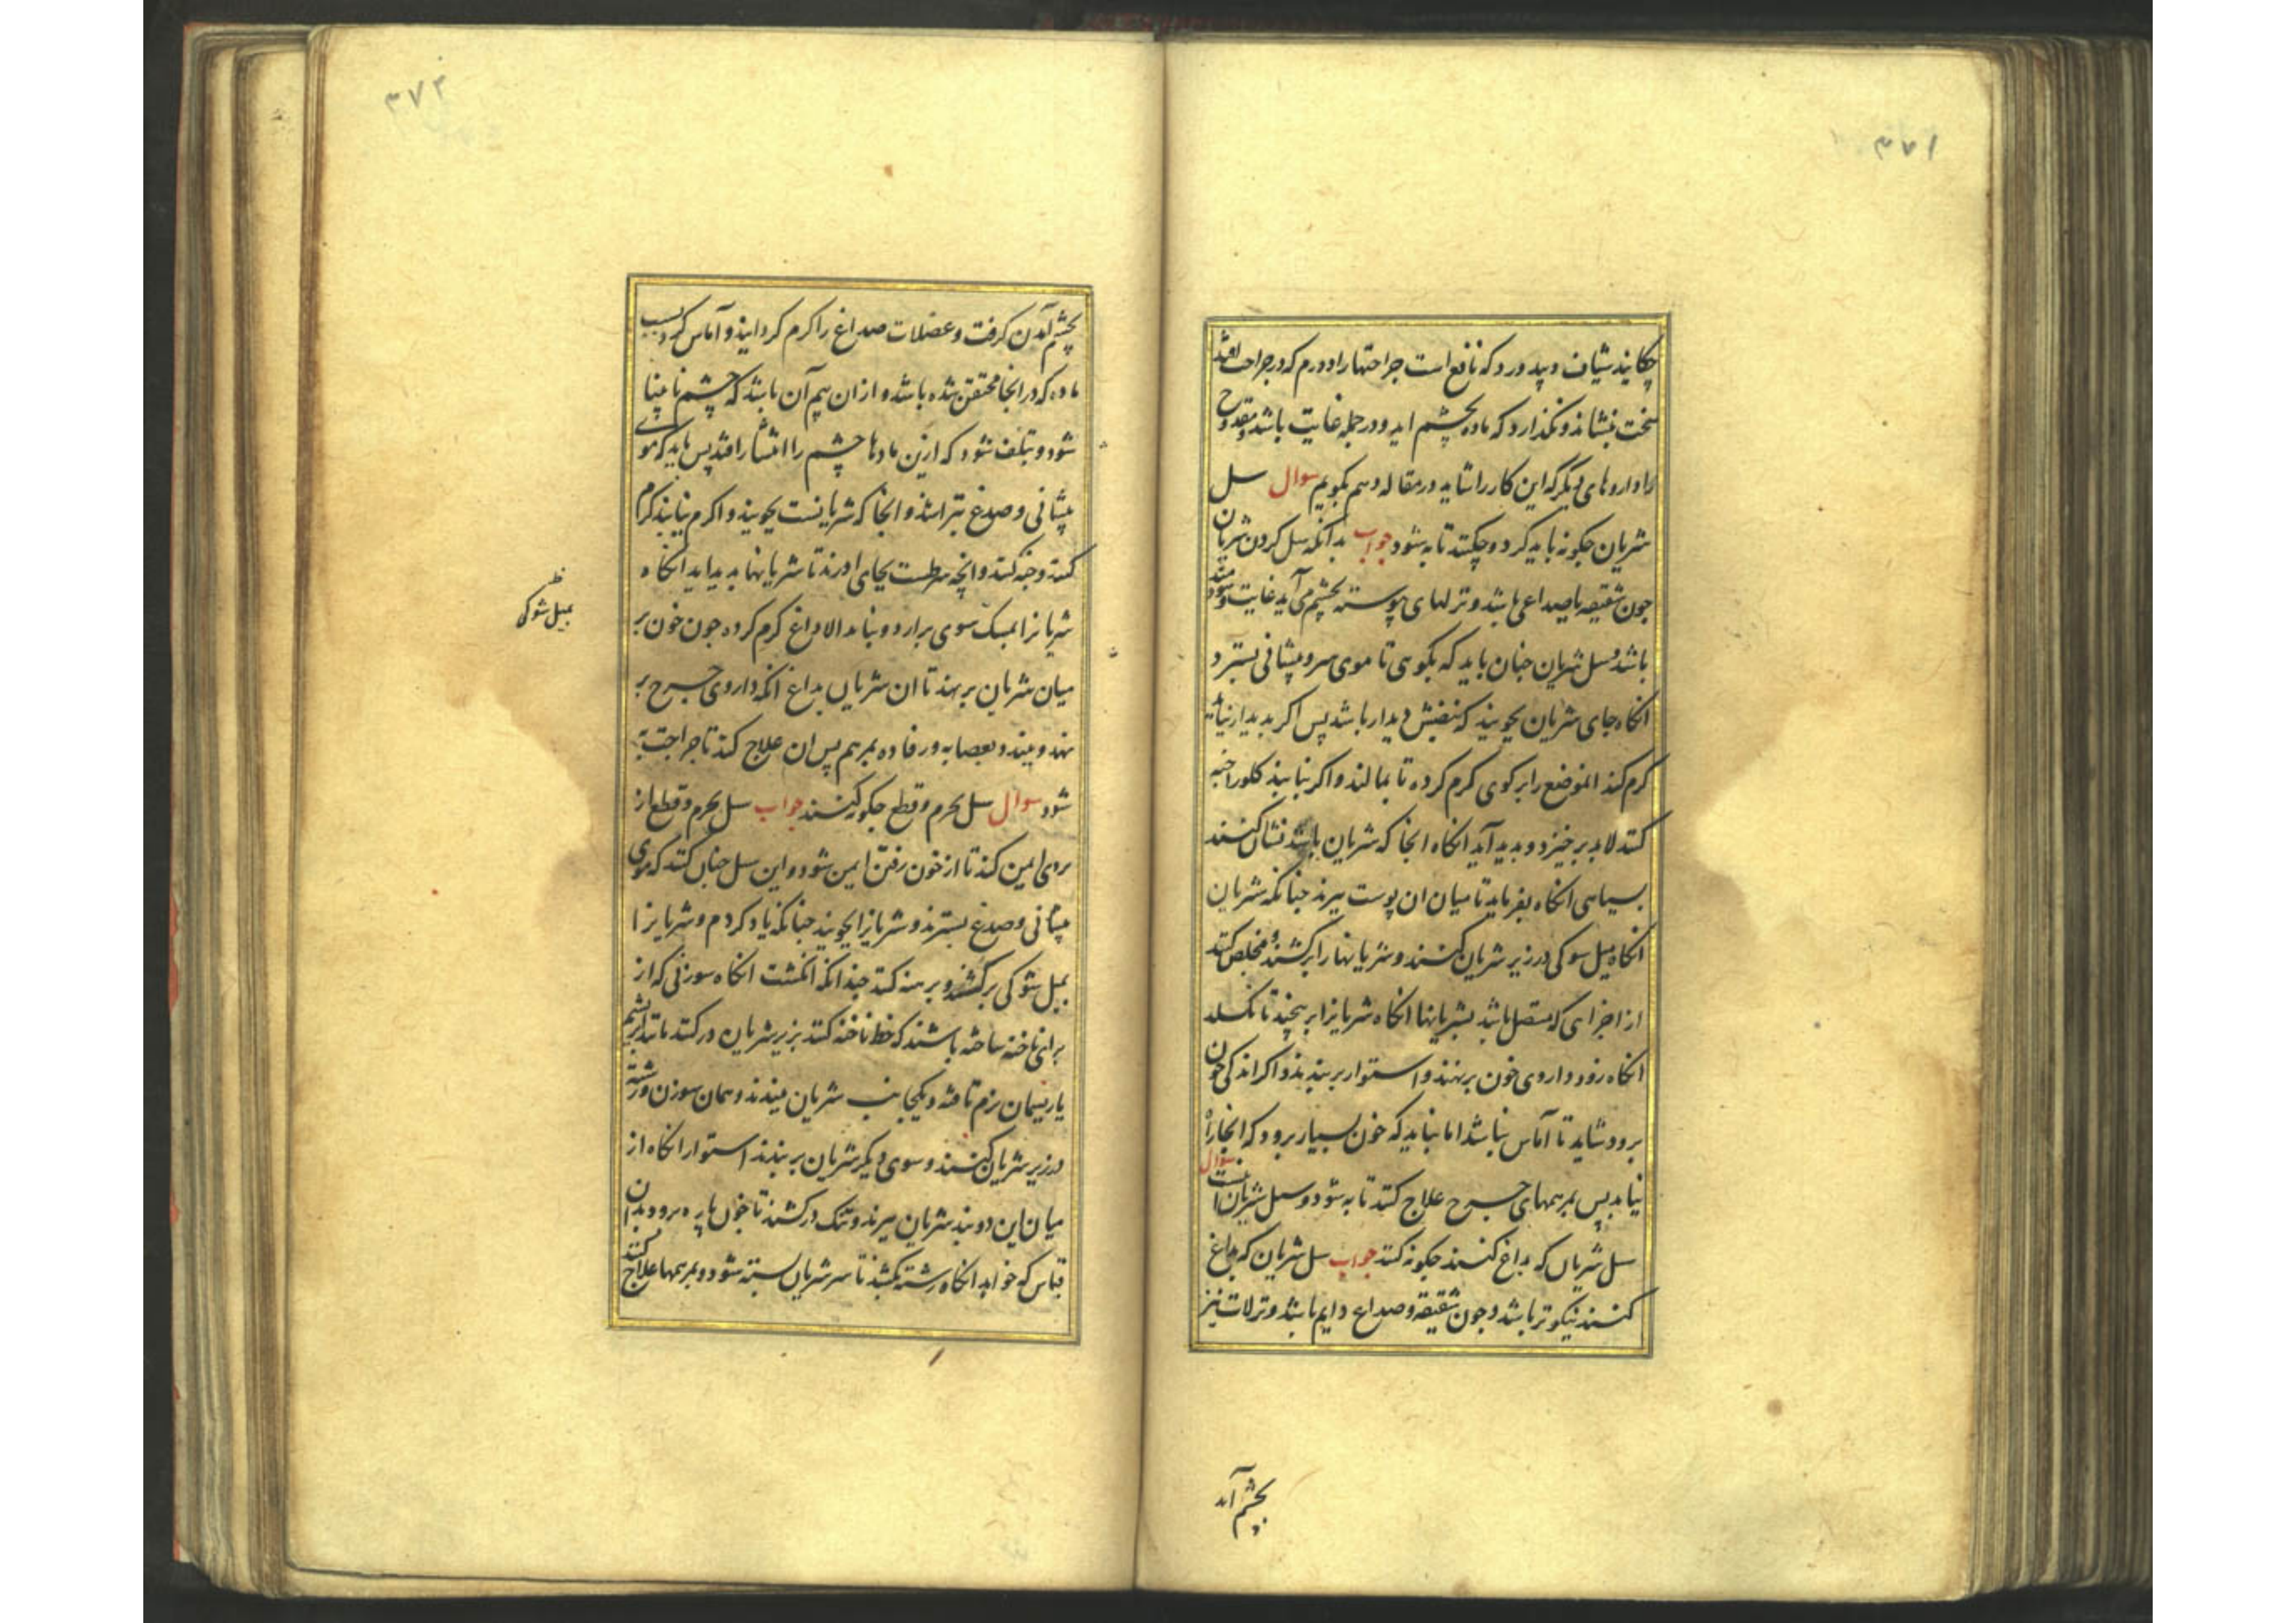 ۳۷۱
چکانید شیاف وپد ورد که نافع است جراحتها را و ورم که در جراحت افتد
سخت بنشاند و نکذارد که ماده بچشم اید و در جمله غایت باشد و مقدوح
را داروهای دیکر که این کار را شاید در مقاله دهم بکویم سوال سل
شریان جکونه باید کرد و چکنند تا به شود جواب بدانکه سل کردن شریان
جون شقیقه یا صداعی باشد و نزلهای پوسته بچشم می آید غایت سودمند
باشد و سل شریان جنان باید که بکوی تا موی سر و پیشانی بسترد
انکاه جای شریان بجویند که نبضش دیدار باشد پس اکر بدیدار نباشد
کرم کند الموضع را برکوی کرم کرده تا بمالند و اکر نیابند کلو را خبه
کنند لابد برخیزد و بدید آید انکاه انجا که شریان باشد نشان کنند
بسیاهی انکاه بفرماید تا میان ان پوست ببرند جنانکه شریان
انکاه میل سوکی در زیر شریان کنند و شریانها را برکشند و مخلص کنند
از اجزای که متصل باشد بشریانها انکاه شریانرا بربیچند تا نکسلد
انکاه زود داروی خون برنهند و استوار بربندند و اکر اندکی خون
برود شاید تا آماس نباشد اما نباید که خون بسیار برود که انجا را
نیابد پس بمرهمهای جرح علاج کنند تا به شود و سل شریان اینست سوال
سل شریان که بداغ کنند جکونه کنند جواب سل شریان که بداغ
کنند نیکوتر باشد و جون شقیقه و صداع دایم باشد و نزلات نیز
بچشم آمد
۳۷۲
بچشم آمدن کرفت و عضلات صداغ را کرم کردانید و آماس کرد بسبب
ماده که در انجا محتقن شده باشد و از ان بیم آن باشد که چشم نابینا
شود و تلف شود که ازین مادها چشم را انتشار افتد پس باید که موی
پیشانی و صدغ بتراشند و انجا که شریانست بجویند و اکرم نیابند کرم
کنند و خبه کنند و انچه شرطست بجای اورند تا شریانها بدید اید انکاه
شریانرا بمیل سوی برارد و بنا بدالا داغ کرم کرده جون خون بر
میان شریان برنهند تا ان شریان بداغ انکه داروی جرح بر
نهند و ببندد بعصابه و رفاده بمرهم پس ان علاج کند تا جراحت به
شود سوال سل بحرم و قطع جکونه کنند جواب سل بحرم و قطع از
بردی ایمن کند تا از خون رفتن ایمن شود و این سل جنان کنند که موی
پیشانی و صدغ بسترند و شریانرا بجویند جنانکه یاد کردم و شریانرا
بمیل شوکی برکشند و برهنه کنند جندانکه انکشت انکاه سوزنی که از
برای ناخنه ساخته باشند که خط ناخنه کنند بزیر شریان درکنند باتاء ابریشم
یا ریسمان نرم تافته و یکجانب شریان ببندند و همان سوزن و رشته
در زیر شریان کنند و سوی دیکر شریان بربندند استوار انکاه از
میان این دو بند شریان ببرند و تنک درکشند تا خون پاره برود بدان
قیاس که خواهد انکاه رشته بکشند تا سر شریان بسته شود و بمرهمها علاج کنند
بمیل شوکی